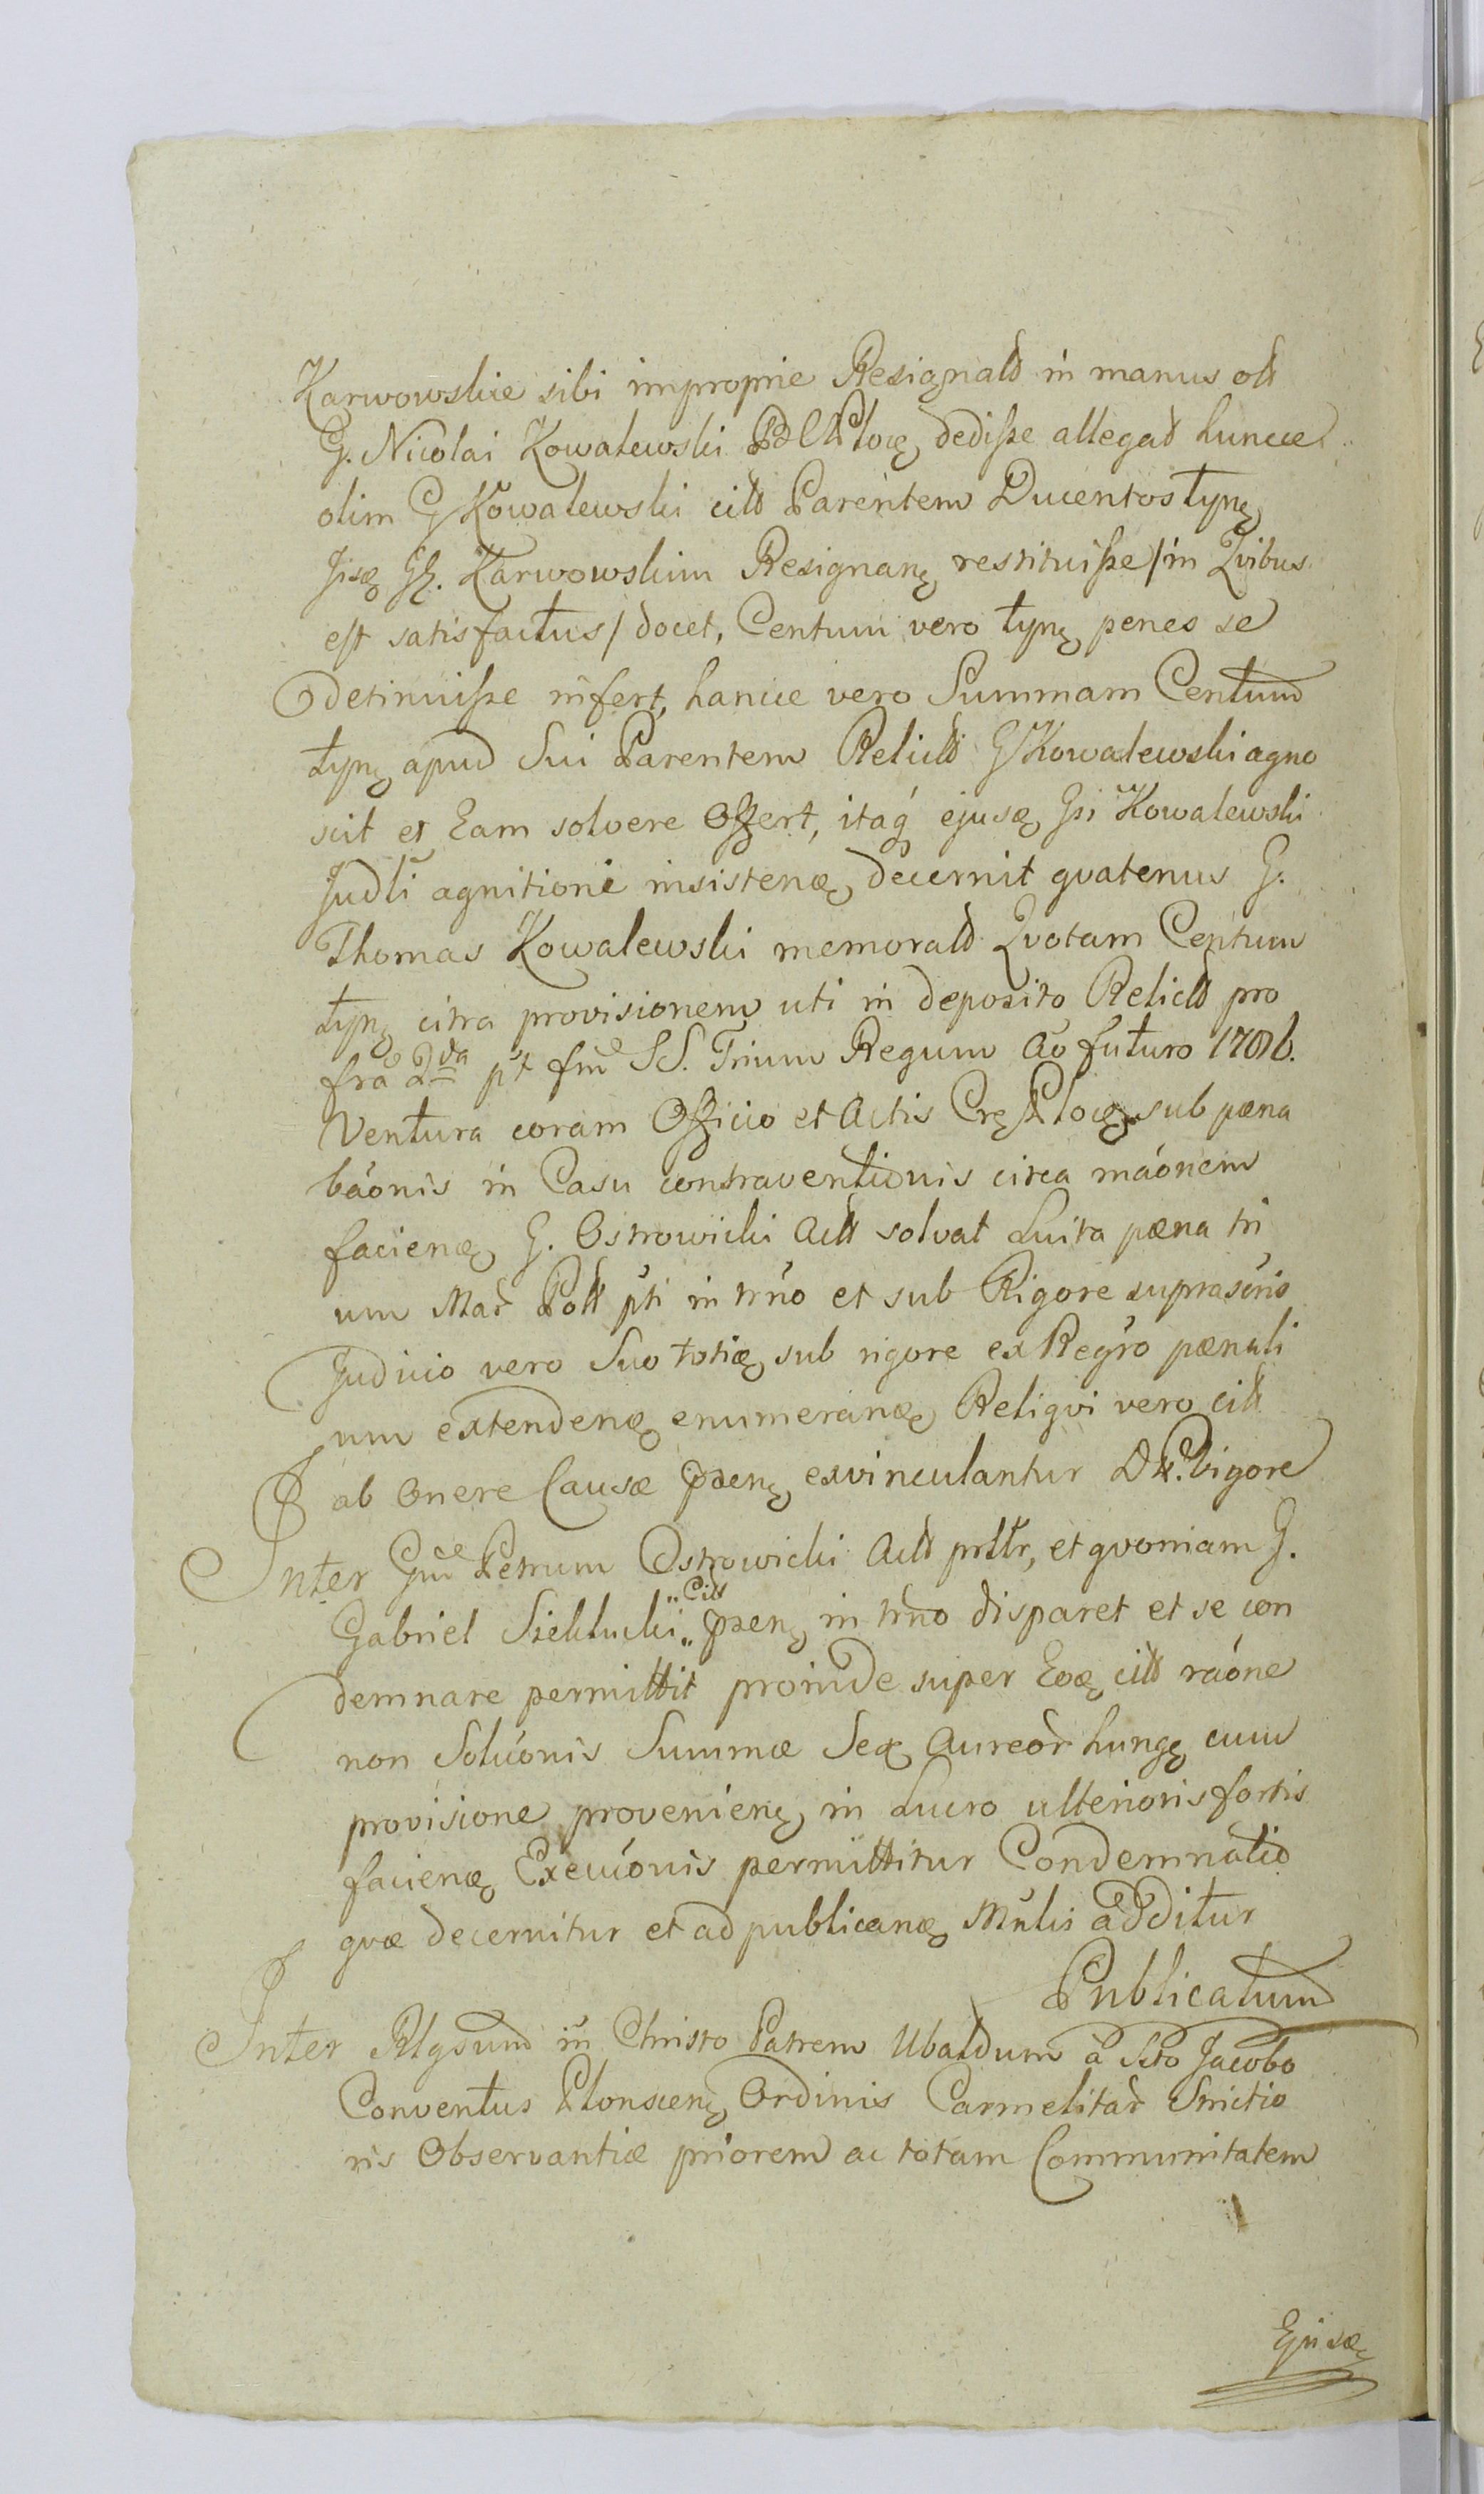 Karwowskie sibi improprie Resignatt in manus ott
G. Nicolai Kowalewski Plocę dedisse allegad huncce
olim G Kowalewski citt Parentem Ducentos tynę
Jisę GG. Karwowskim Resignanę restituisse/in Qvibus
est satisfactus/docet, Centum vero tynę penes se
detinuisse infert, hancce vero Summam Centum
tynę apud Sui Parentem Relictt G Kowalewski agno
scit et Eam solvere Offert, itaq́ ejusę Gsi Kowalewski
Judli agnitioni insistenę decernit qvatenus G.
Thomas Kowalewski memoratt Qvotam Centum
tynę citra provisionem uti in deposito Relictt pro
fra 2da pt fm SS. Trium Regum Ao futuro 1786.
Ventura coram Officio et Actis Cręs Plocę sub pæna
báonis in Casu contraventionis circa máonem
facienę G. Ostrowicki Actt solvat Luita pæna tri
um Mar Poll pti in trno et sub Rigore suprascris
Judicio vero Suo totię sub rigore ex Regro pænali
um extendenę enumeranę Reliqvi vero citt
ab Onere Causæ pxenę exvinculantur Dti. Vigore
Inter Gm Petrum Ostrowicki Actt prttr, et qvoniam G.
Gabriel Siekłucki "Citt" pxenę in trno disparet et se con
demnare permittit proinde super Eoę citt ráone
non Solúonis Summæ Sex Aureor hungę cum
provisione provenienę in Lucro ulterioris fortis
facienę Execúonis permittitur Condemnatio
qvæ decernitur et ad publicanę Mnlis additur
Publicatum
Inter Rlgsum in Christo Patrem Ubaldum a Scto Jacobo
Conventus Plonscenę Ordinis Carmelitar Strictio
ris Observantiæ priorem ac totam Communitatem
Ejusę